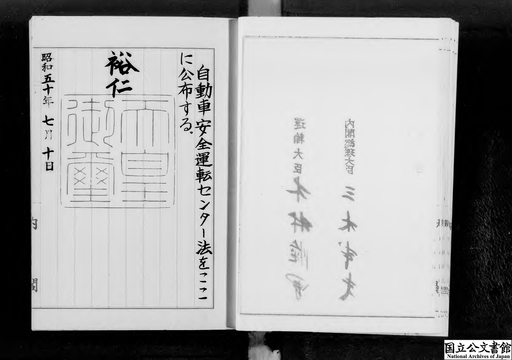 自動車安全運転センター法をここ
に公布する。
裕仁
天皇
御璽
昭和五十年七月十日
内閣
内閣総理大臣 三木武夫
運輸大臣 木村睦男
国立公文書館
National Archives of Japan